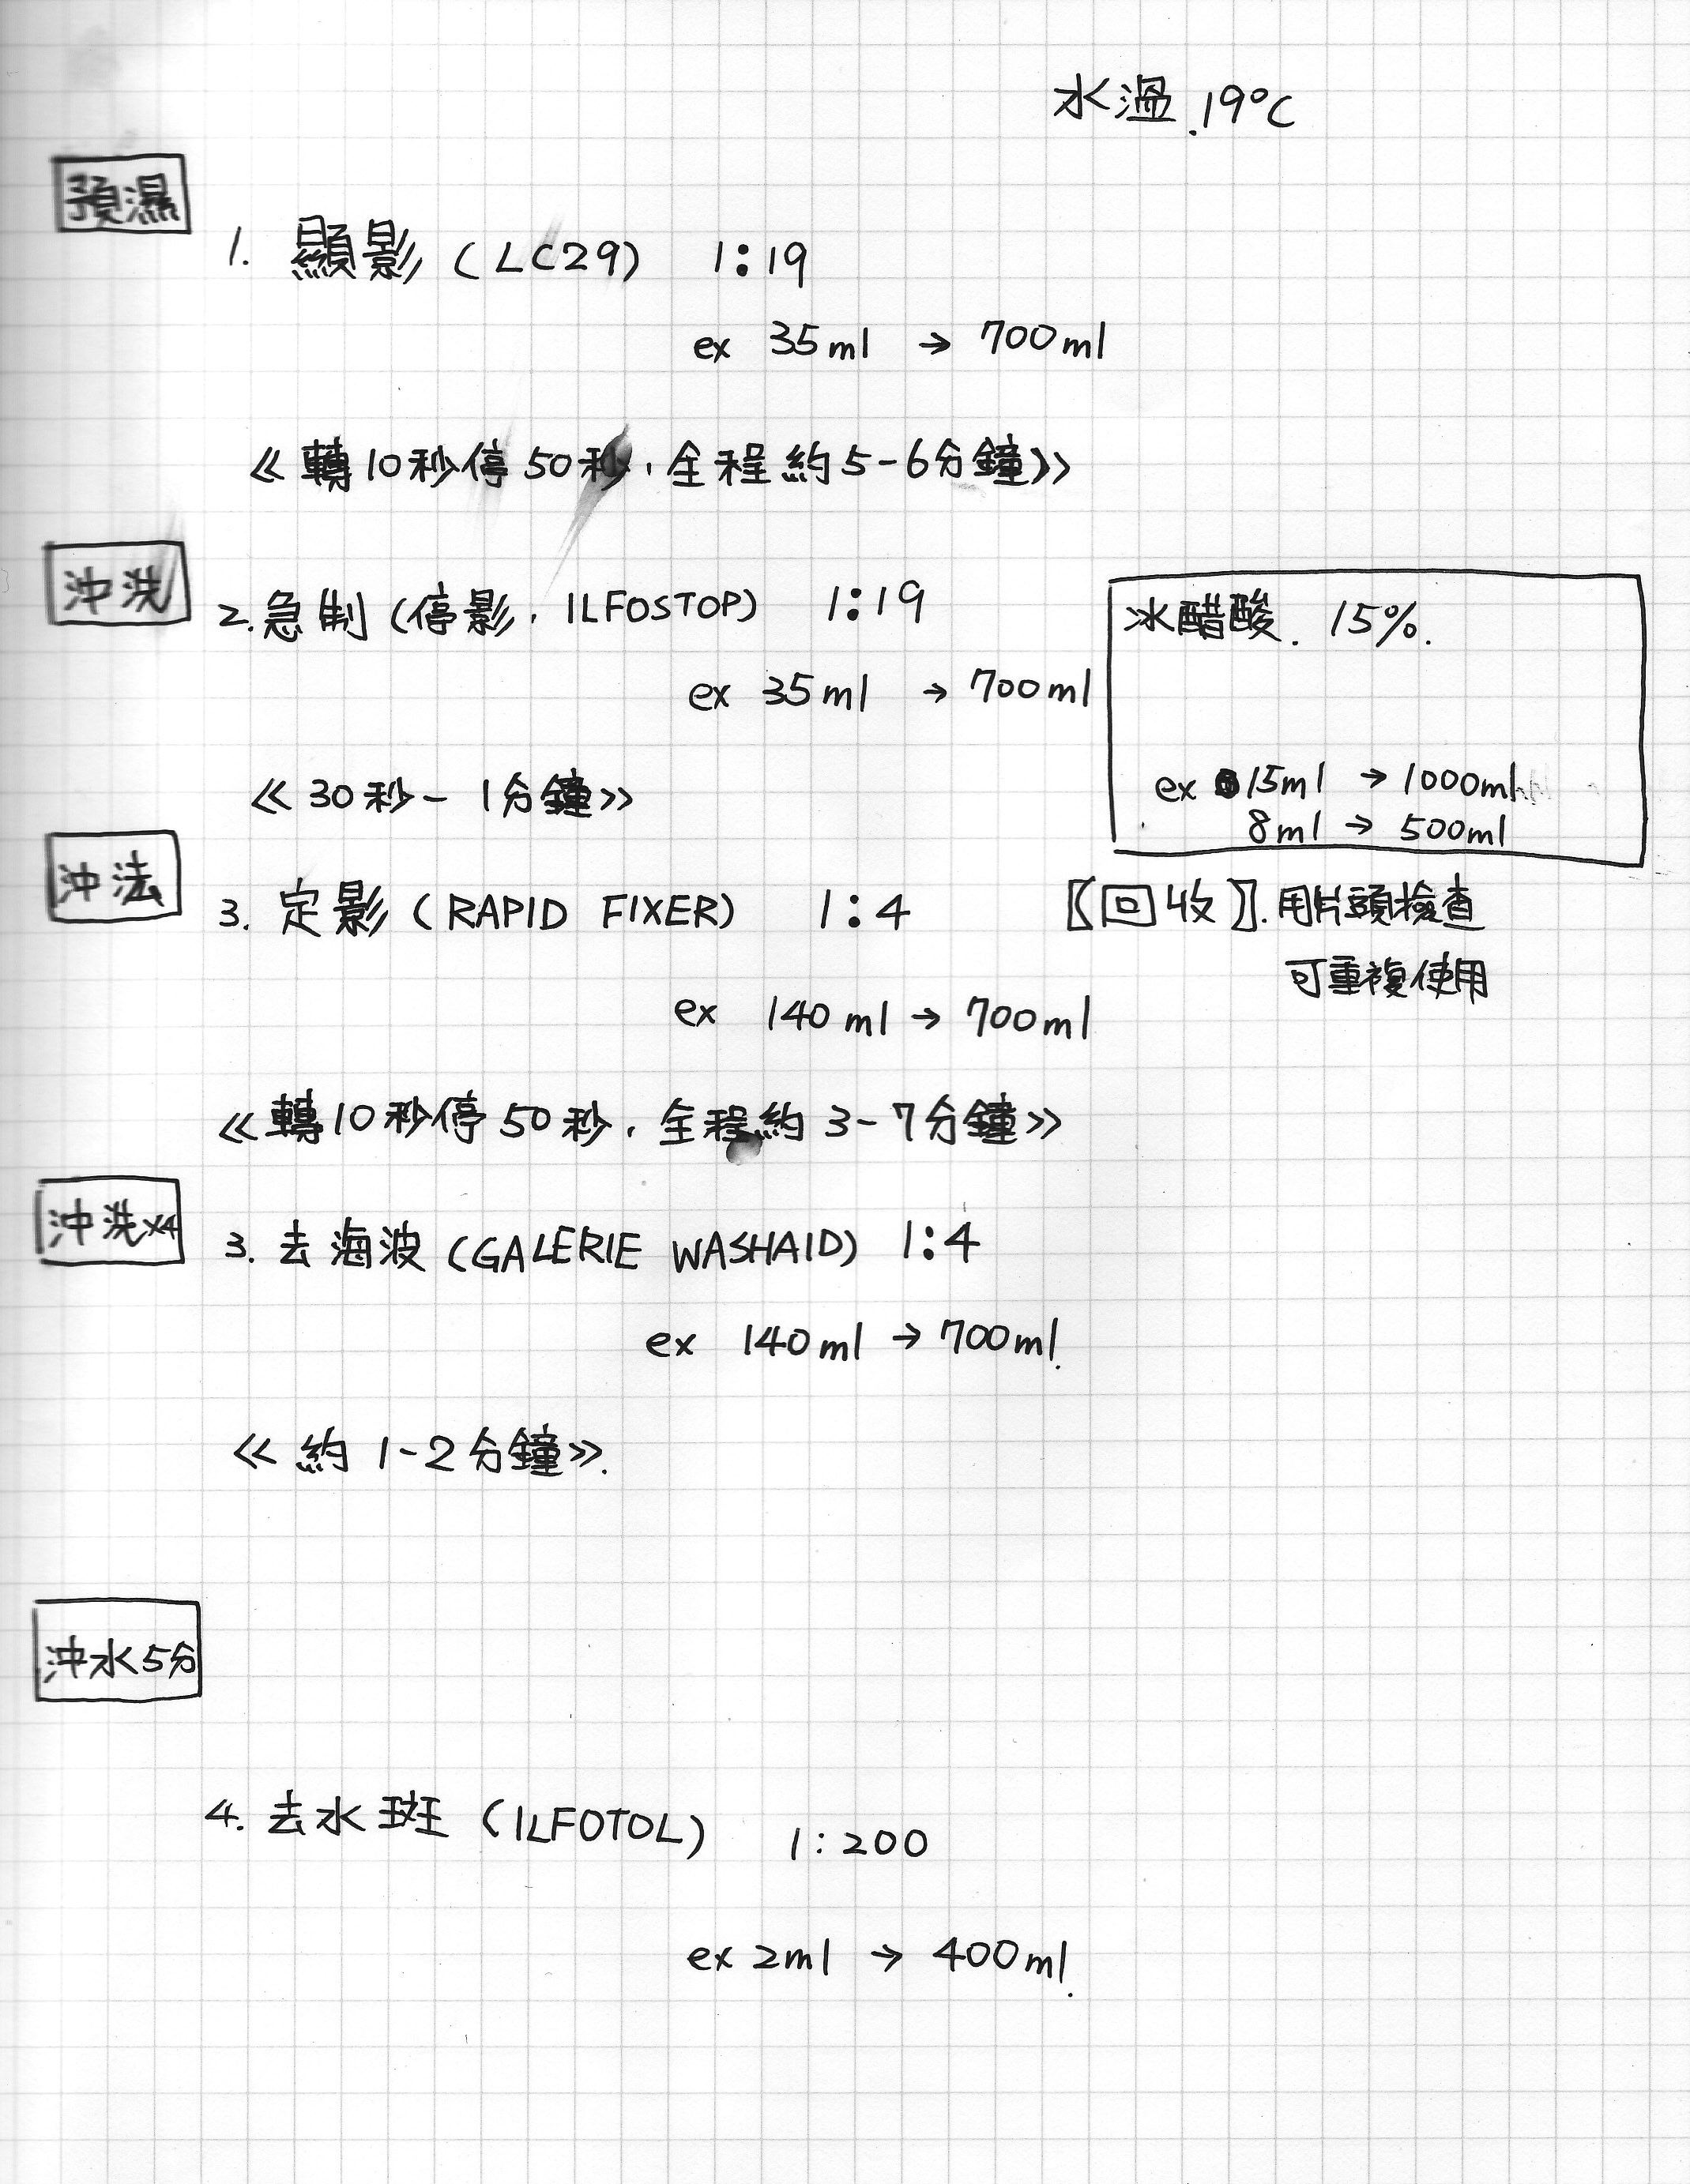 水溫.19°C
預濕
1. 顯影 (LC29) 1:19
ex 35ml → 700ml
《轉10秒停50秒,全程約5-6分鐘》
沖洗
2.急制 (停影, ILFOSTOP) 1:19
ex 35ml → 700ml
冰醋酸. 15%.
ex 15ml → 1000ml
8ml → 500ml
《30秒-1分鐘》
沖法
3. 定影 (RAPID FIXER) 1:4
〖回收〗.用片頭檢查
可重複使用
ex 140ml → 700ml
《轉10秒停50秒,全程約3-7分鐘》
沖洗x4
3. 去海波 (GALERIE WASHAID) 1:4
ex 140ml → 700ml.
《約1-2分鐘》.
沖水5分
4. 去水斑 (ILFOTOL) 1:200
ex 2ml → 400ml.